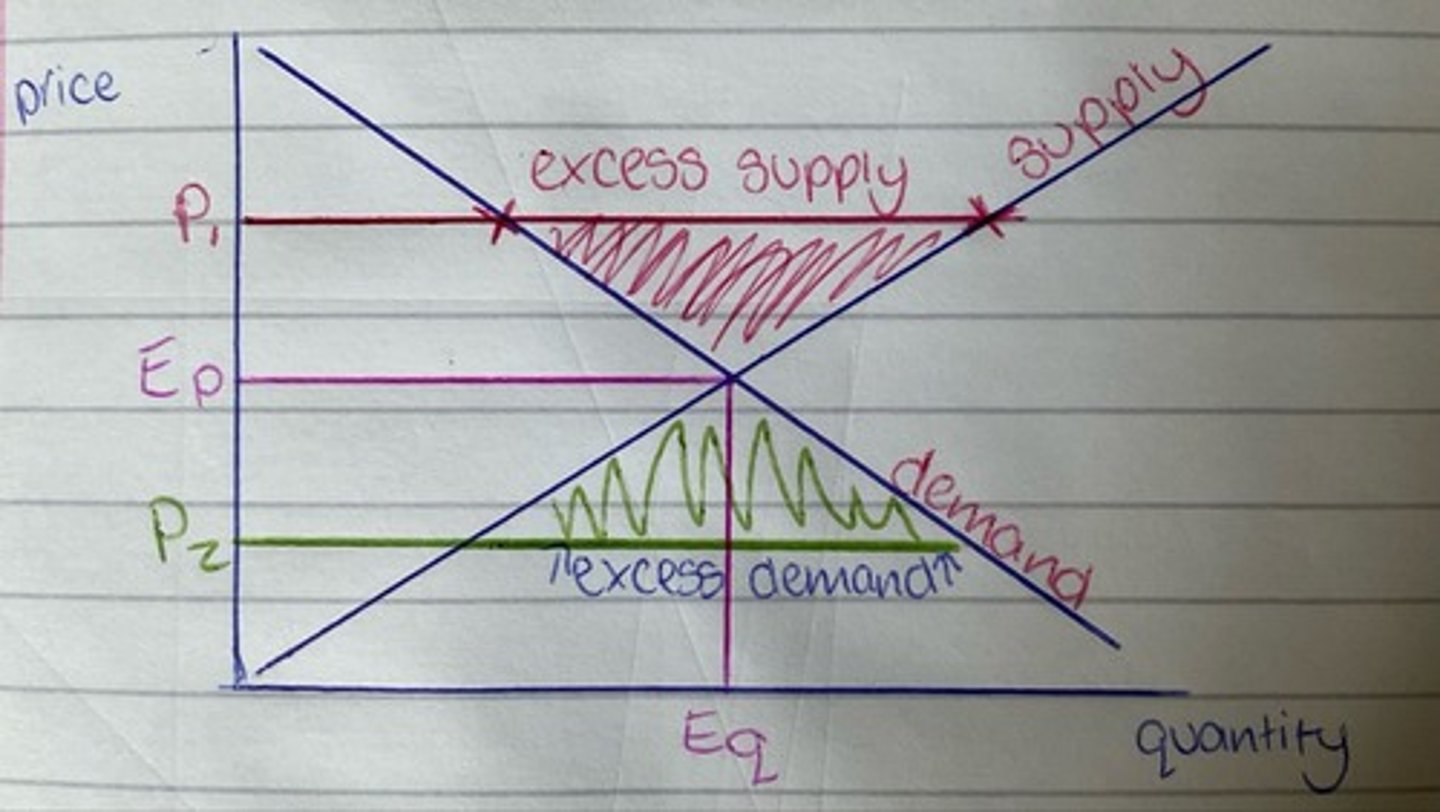 price
supply
excess supply
P1
Ep
demand
P2
excess demand
Eq
quantity